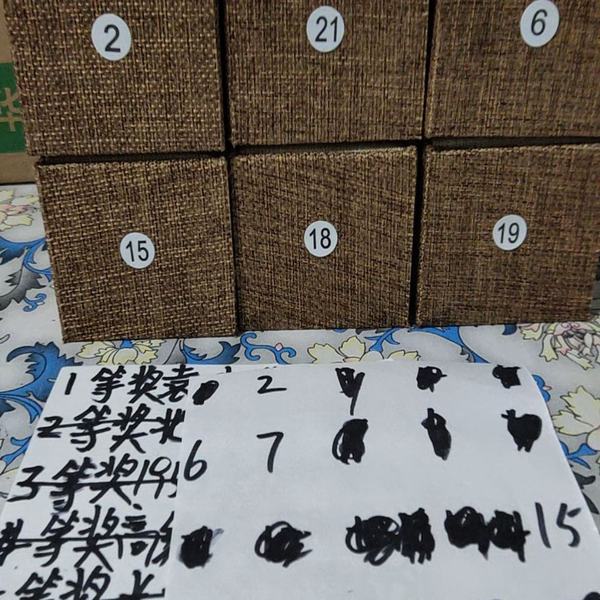 2
21
6
15
18
19
1等奖袁
2
2等奖北
6
7
3等奖19
4等奖高
15
等奖